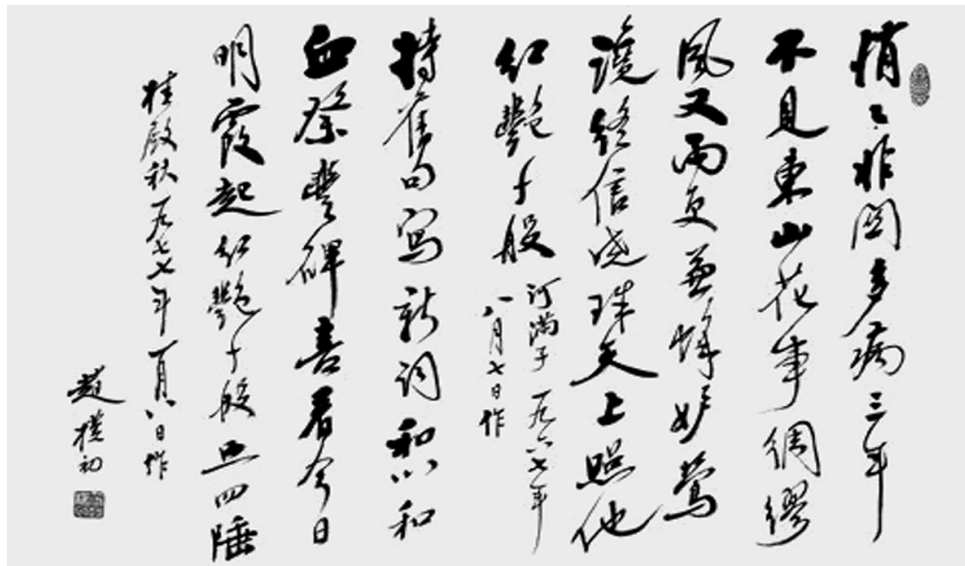 悄々非関多病三年
不見東山花事綢繆
風又雨更兼蜂妒鶯
讒終信曉珠天上照他
紅艷千般
訶滿子 一九六七年
八月七日作
持舊句寫新詞和心和
血祭豐碑喜看今日
明霞起紅艷千般亘四陲
桂殿秋 一九七七年一月八日作
趙樸初